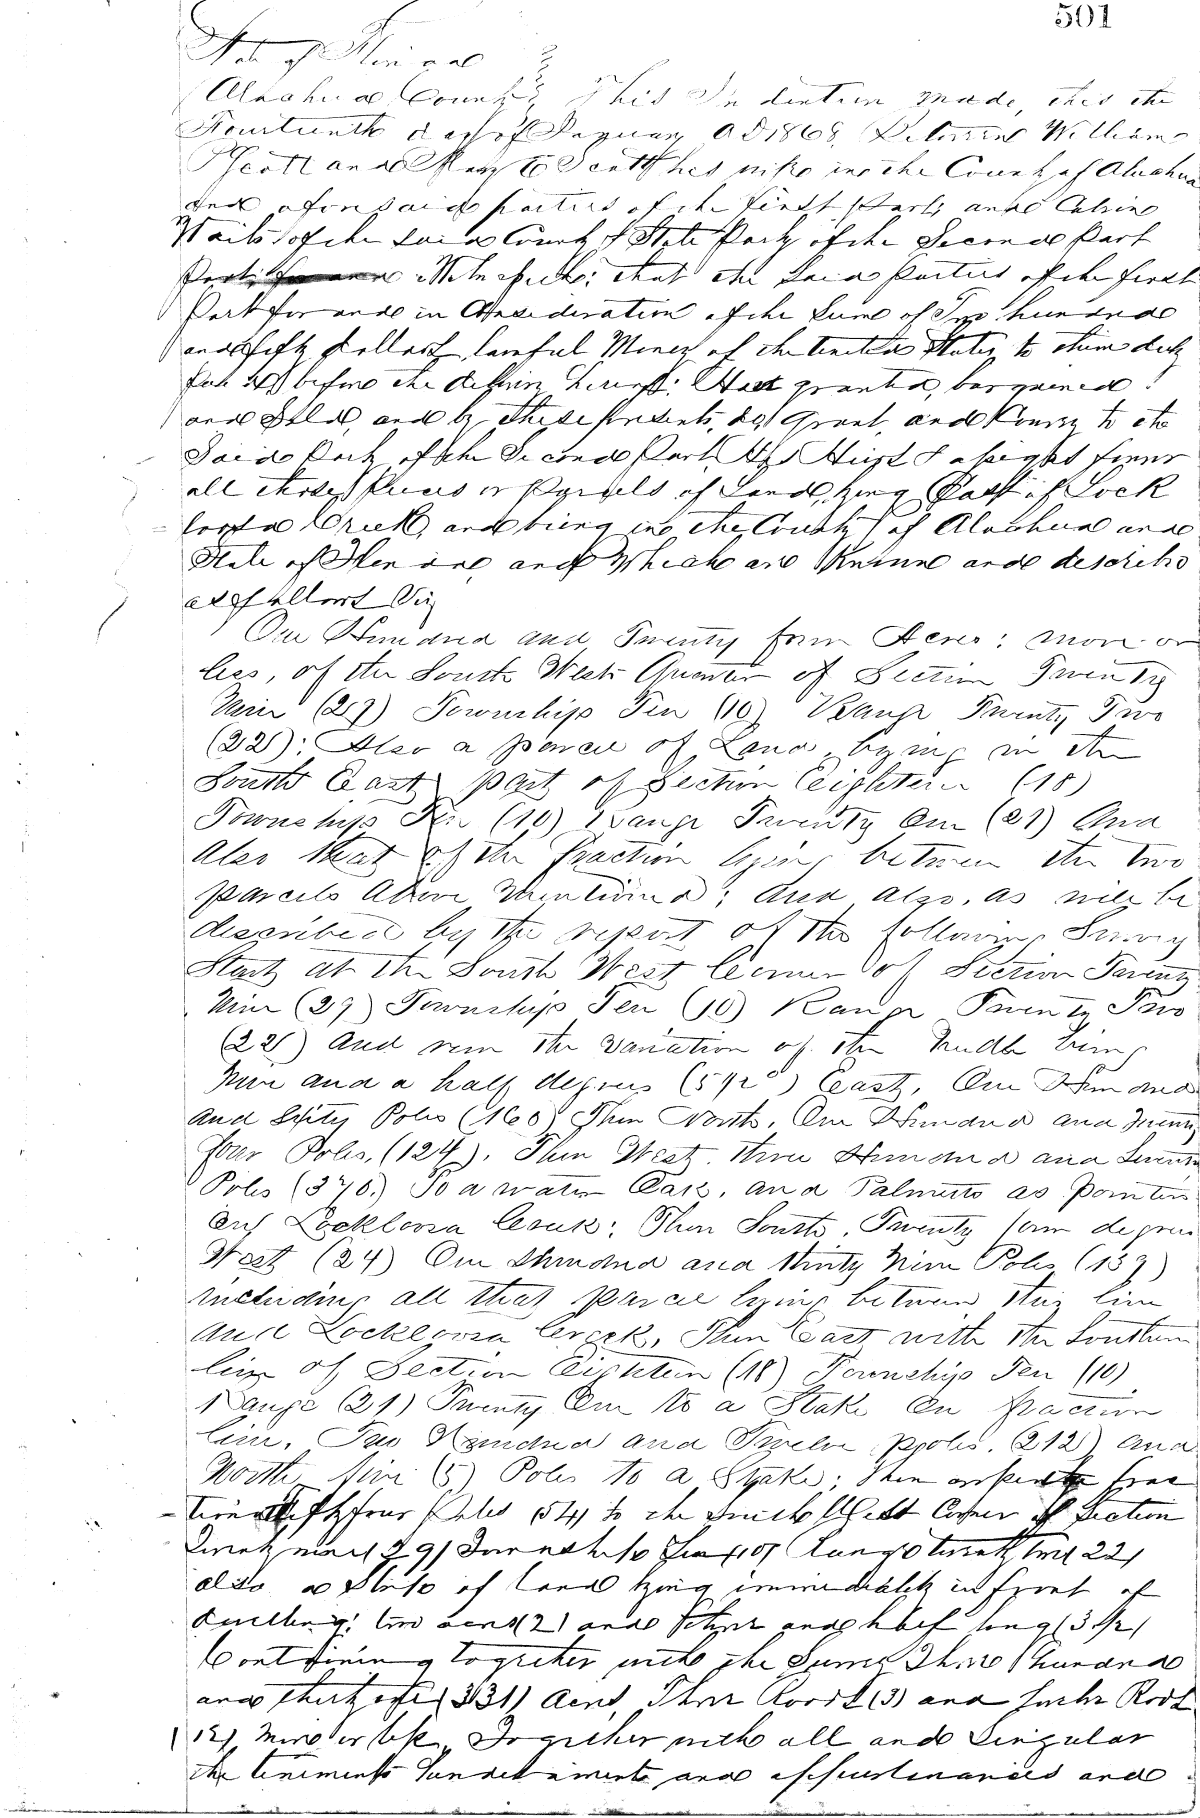 501
State of Florida
Alachua County This Indenture made, this the
Fourteenth day of January AD 1868, Between William
Scott and his wife in the County of Alachua
and aforesaid parties of the first Part, and Calvin
Waits of the said County & State Party of the Second Part
Witnesseth: that the Said Parties of the first
Part for and in Consideration of the Sum of Two hundred
and fifty Dollars, lawful Money of the United States, to them duly
before the delivery hereof: Have granted, bargained
and Sold, and by these presents, do grant, and Convey to the
Said Party of the Second Part, His Heirs & assigns forever
all those pieces or Parcels of Land, lying East of Lock
loosa Creek, and being in the County of Alachua and
State of Florida, and Which are Known and described
as follows Viz
One Hundred and Twenty four Acres: more or
less, of the South West Quarter of Section Twenty
Nine (29) Township Ten (10) Range Twenty Two
(22): Also a parcel of Land, lying in the
South East part of Section Eighteen (18)
Township Ten (10) Range Twenty One (21) And
Also that of the fraction lying between the two
parcels above Mentioned; And also, as will be
described by the report of the following Survey
Start at the South West Corner of Section Twenty
Nine (29) Township Ten (10) Range Twenty Two
(22) And run the variation of the Needle being
five and a half degrees (5 1/2°) East, One Hundred
and Sixty Poles (160) Then North, One Hundred and Twenty
four Poles, (124), Then West, three Hundred and Seventy
Poles (370) To a water Oak, and a Palmetto as pointers
on Lockloosa Creek: Then South, Twenty four degrees
West (24) One Hundred and thirty Nine Poles (139)
including all that parcel lying between this line
and Lockloosa Creek, Then East with the Southern
line of Section Eighteen (18) Township Ten (10)
Range (21) Twenty One to a Stake On fraction
line, Two Hundred and Twelve poles, (212) And
North five (5) Poles to a Stake; then frac
tion fifty four Poles (54) to the South West Corner of Section
Twenty nine (29) Township Ten (10) Range twenty two (22)
also a of land lying immediately in front of
dwelling: two acres (2) and and half long (3 1/2)
Containing together with the Sum, Three hundred
and thirty one (331) Acres, Three Roods (3) and Rods
(12) More or less, Together with all and Singular
the tenements hereditaments and appurtenances and